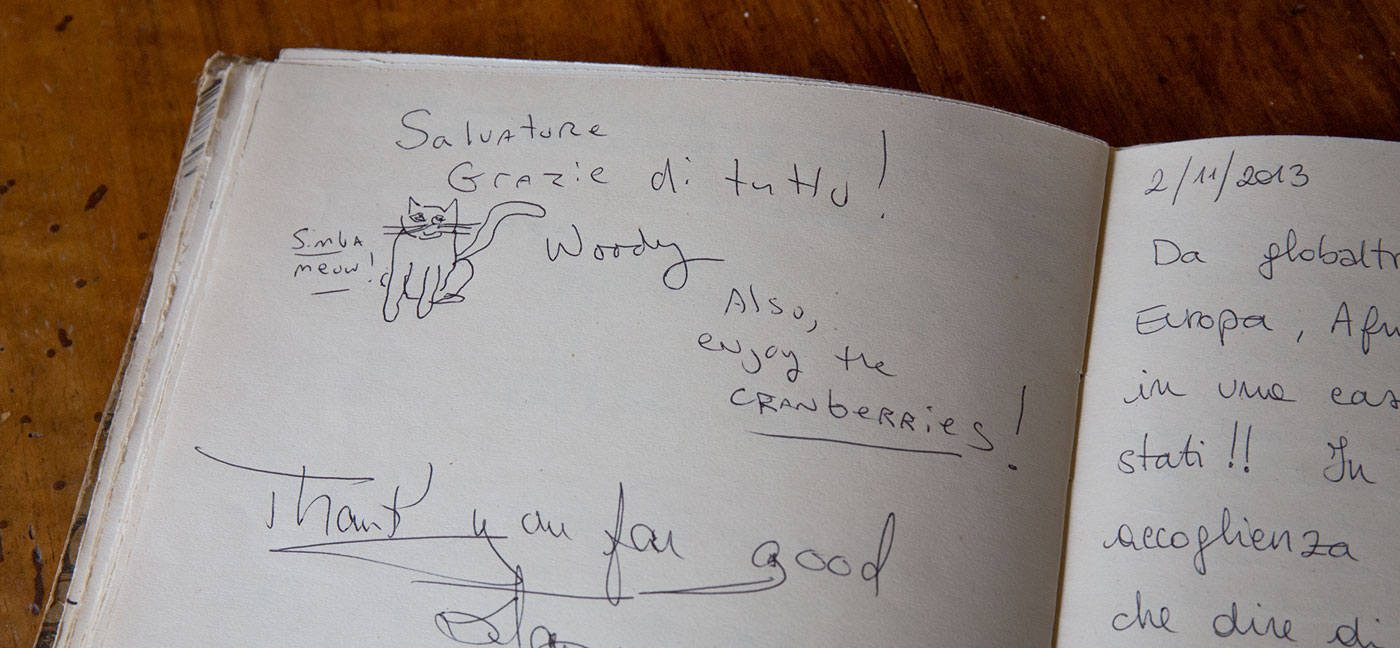 Salvatore
Grazie di tutto!
Simba
meow!
Woody
Also,
enjoy the
CRANbERRies!
Thank you for good
2/11/2013
Da
Europa,
in una
stati!! In
accoglienza
che dire di